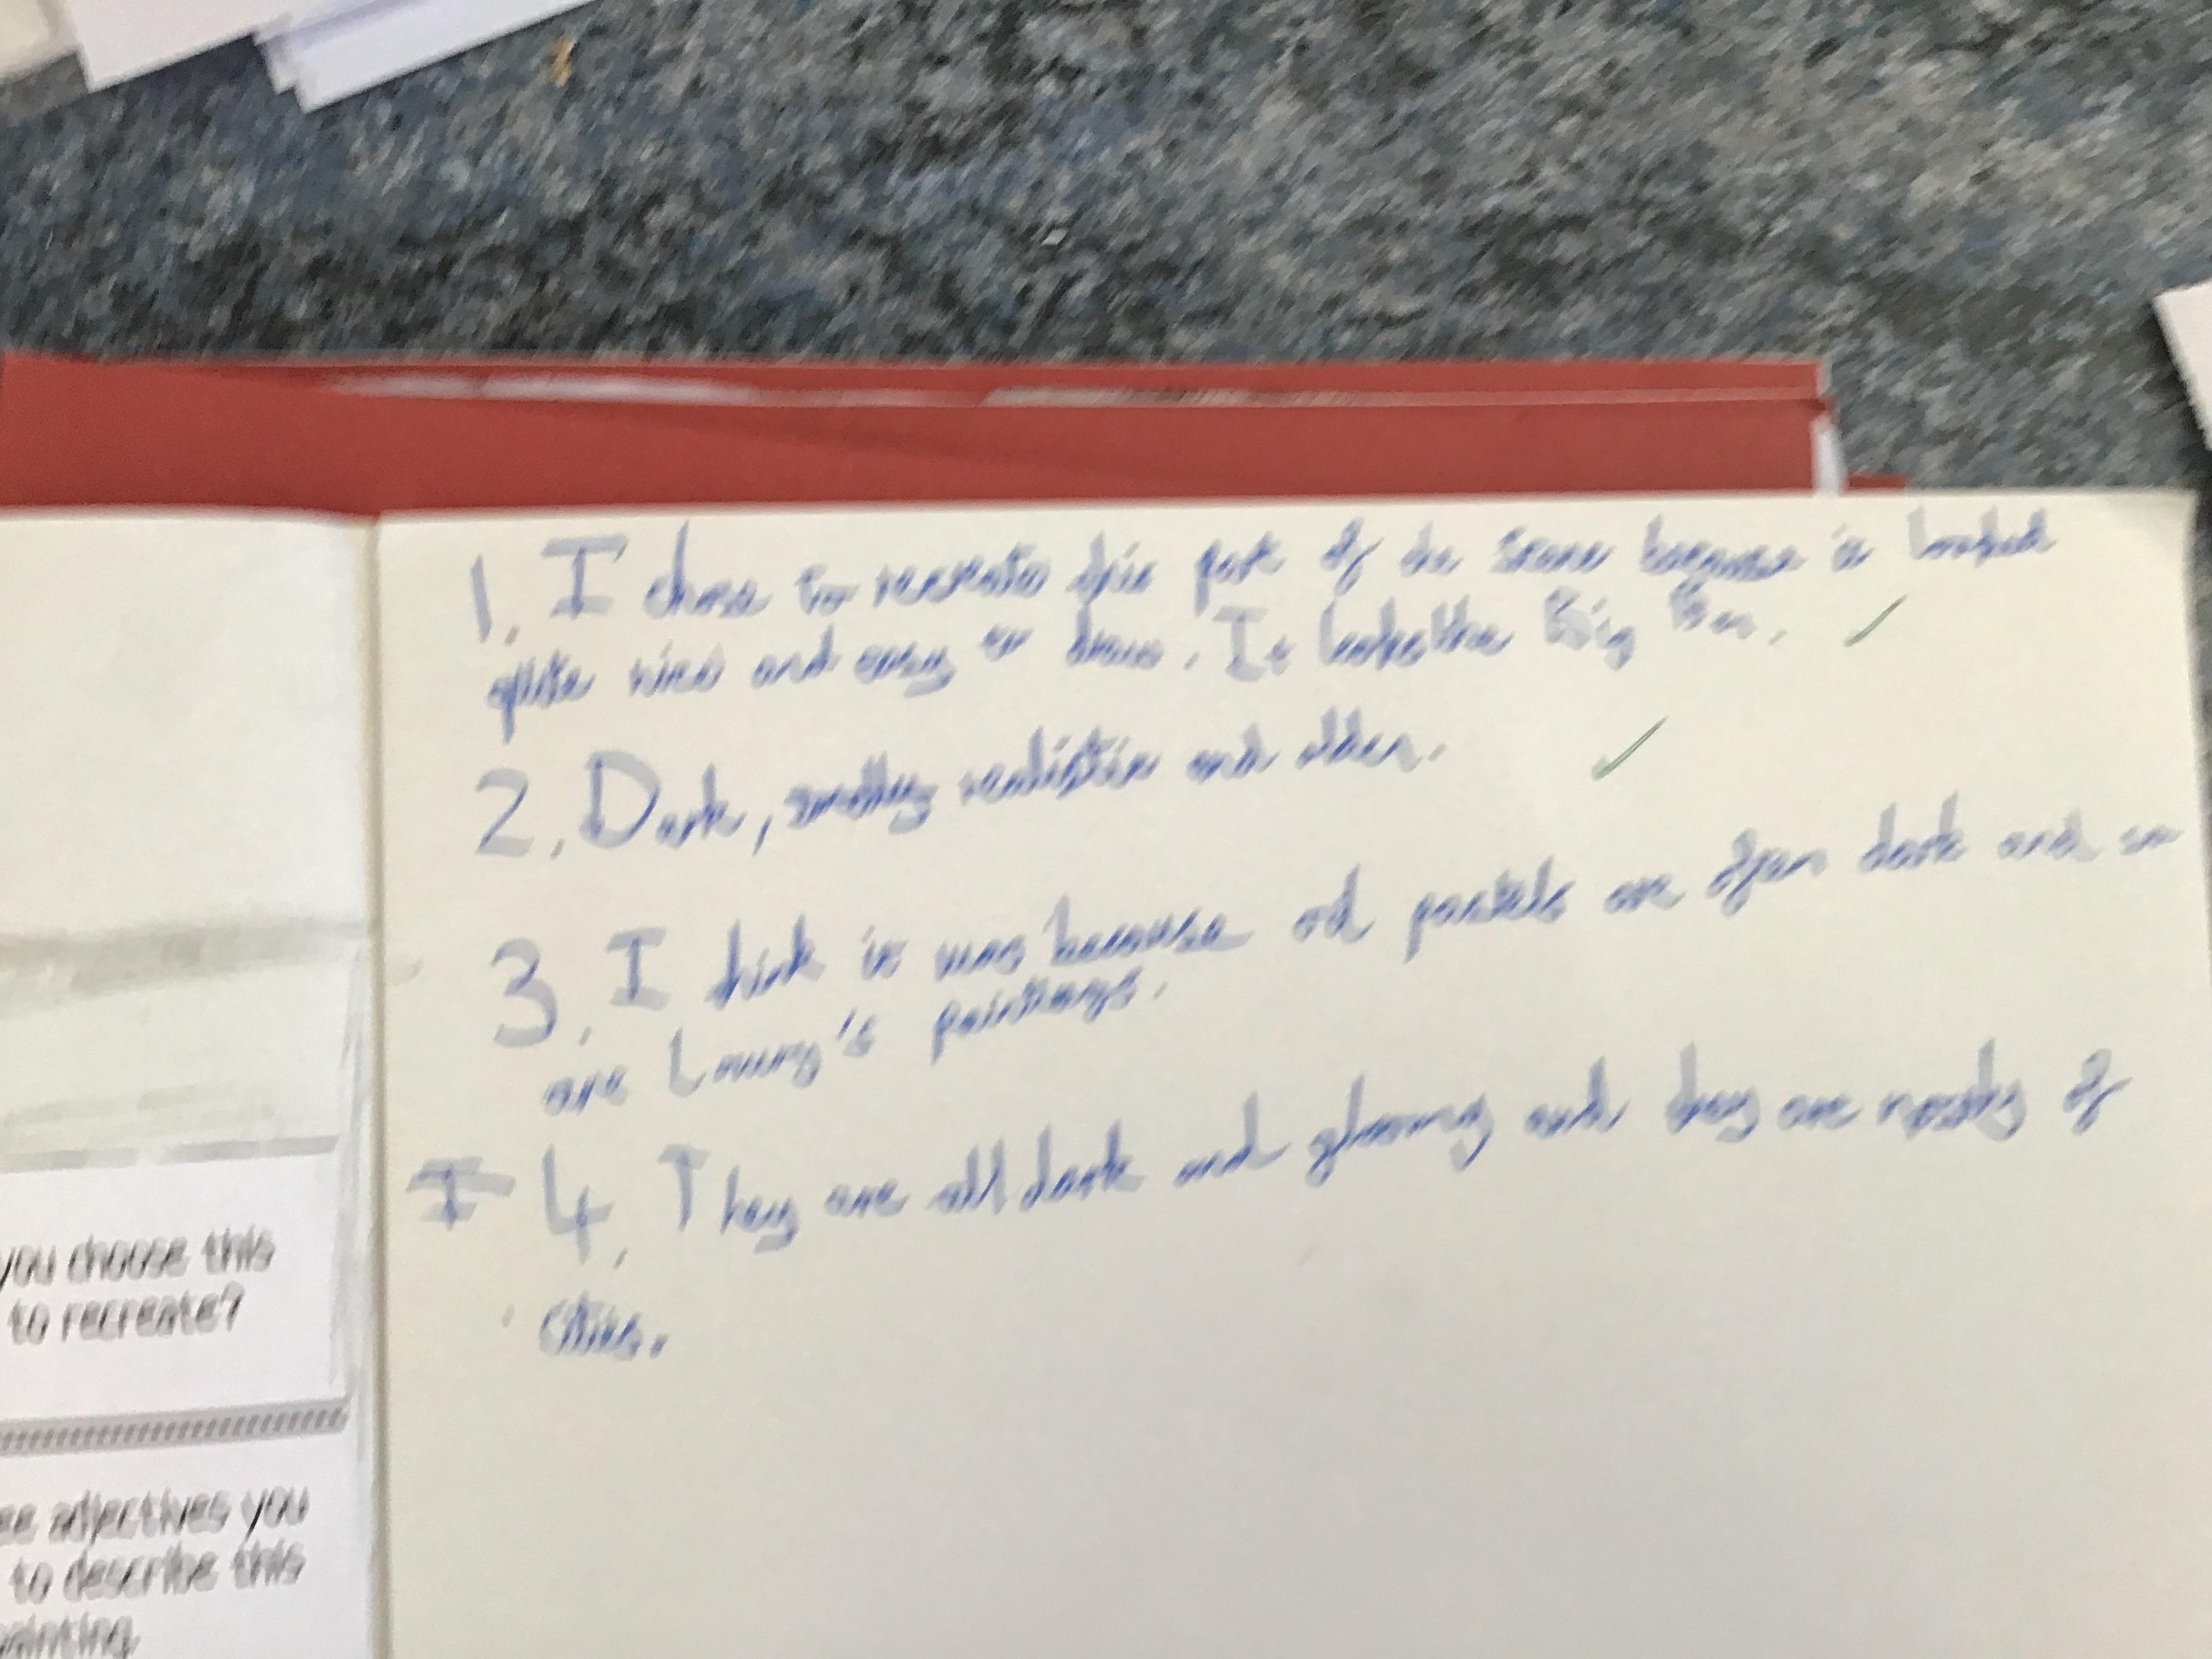 1. I chose to recreate this part of the scene because it looked
quite nice and easy to draw. It looks like Big Ben.
2. Dark, realistic and olden.
3. I think it was because oil pastels are often dark and so
are Lowry's paintings.
I 4. They are all dark and gloomy and they are mostly of
cities.
you choose this
to recreate?
adjectives you
to describe this
painting